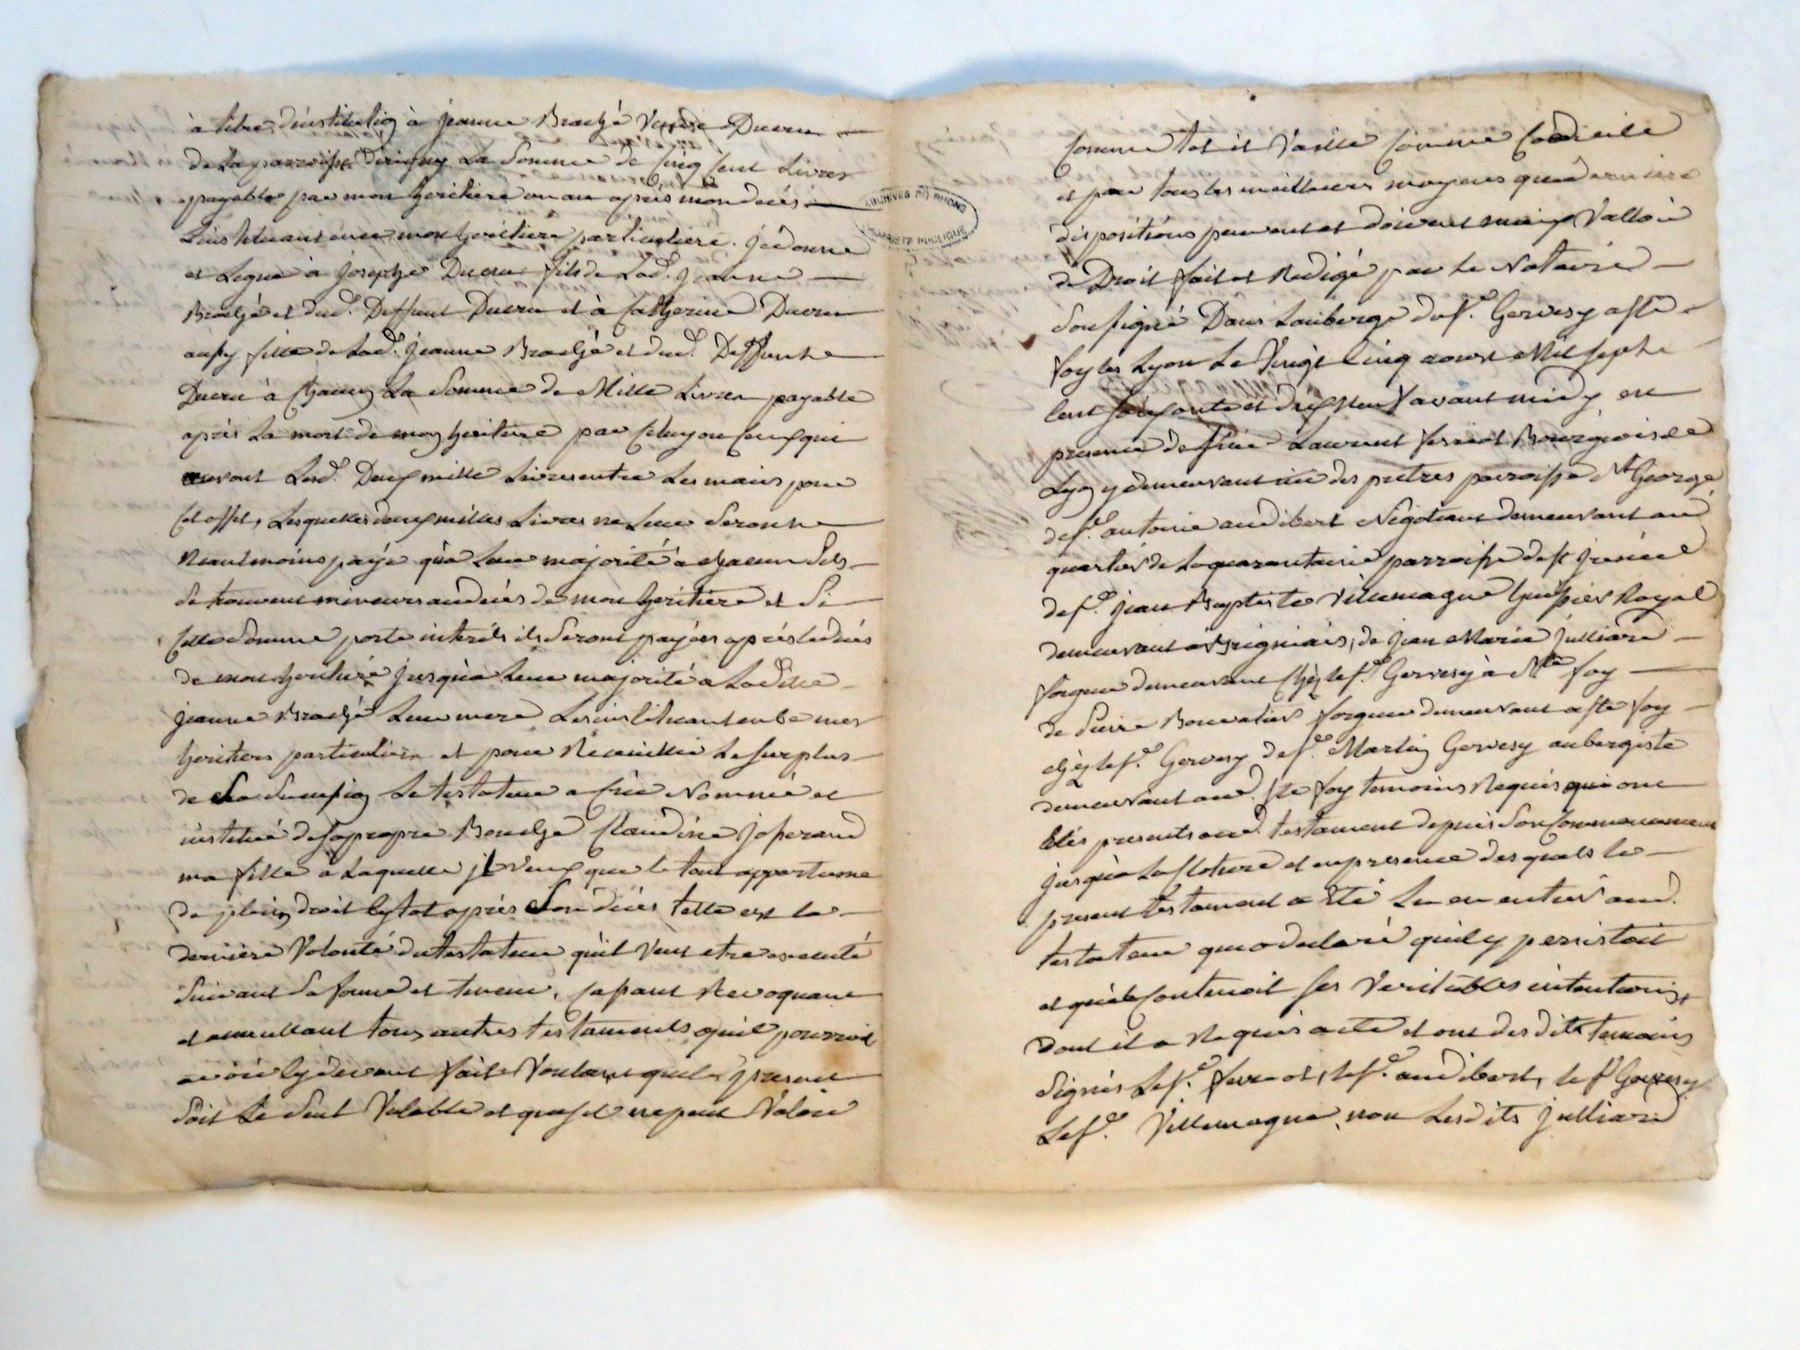 à titre d'institution à jeanne Braché Veuve Ducru
de la parroisse d'irigny la Somme de Cinq Cent Livres
payable par mon heritiere un an après mon décés
L'instituant mon heritiere particuliere. je donne
et Legue à joseph Ducru fils de Lad. jeanne
Braché et dud. Deffunt Ducru et à Catherine Ducru
aussy fille de Lad. jeanne Braché et dud. Deffunt
Ducru à Chacun La Somme de Mille Livres payable
après La mort de mon heritiere par Celuy ou Ceux qui
auront Lesd. Deux mille Livres entre Les mains pour
Cet effet, Lesquelles deux milles Livres ne Leur Seront
Neantmoins payé qu'à Leur majorité à chacun S'ils
Se trouvent mineurs au décés de mon heritiere et Si
Cette Somme porte interêts ils Seront payées après le décés
de mon heritiere jusqu'à Leur majorité à Laditte
jeanne Braché Leur mere Les instituant en be mes
heritiers particuliers et pour Recueillir Le Surplus
de Sa Succession Le testateur a Créé Nommé et
institué de Sa propre Bouche Claudine joserand
ma fille à Laquelle je veux que le tout appartienne
de plein droit Sytot après Son décés telle est La
derniere Volonté du testateur qu'il veut etre executé
Suivant Sa forme et teneur, Cassant Revoquant
et annullant tous autres testaments qu'il pourroit
avoir Cy devant fait Voulant que le present
Soit Le Seul Valable et que s'il ne peut Valoir
Comme tel il Vaille Comme Codicile
et par tous les meilleurs moyens que dernieres
dispositions peuvent et doivent mieux Valloir
de Droit fait et Redigé par le Notaire
Soussigné Dans L'auberge du Sr. Gervesy à Ste
foy les Lyon Le Vingt Cinq aoust Mil Sept
Cent Soixante et dix Neuf avant midy en
presence de Sieur Laurent ferreol Bourgeois de
Lyon y demeurant rüe des pretres parroisse St George
de Sr. antoine audibert Négotiant demeurant aud.
quartier de La quarantaine parroisse de St jrénée
de Sr. jean Baptiste Villemagne huissier Royal
demeurant à Brigniais, de jean Marie julliard
forgeur demeurant Chéz le Sr. Gervesy à Ste foy
de Pierre Bonvalier forgeur demeurant à Ste foy
chéz le Sr. Gervesy de Sr. Martin Gervesy aubergiste
demeurant aud. Ste foy temoins Requis qui ont
Etés presents aud. testament depuis Son Commancement
jusqu'à La Cloture et en presence des quels le
present testament a Eté Lu en entier aud.
testateur qui a declaré qu'il y persistoit
et qu'il Contenoit Ses Veritables intentions
dont il a Requis acte et ont desdits temoins
Signés Le Sr. ferreol, le Sr. audibert, le Sr Gervesy
Le Sr. Villemagne, non Lesdits julliard
ARCHIVES DU RHONE
PROPRIÉTÉ PUBLIQUE